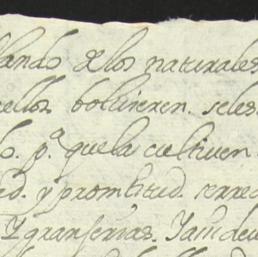 lando de los naturales
ellos bolvieren seles
o. p.ª que la cultiven
ad. y promtitud.
y granserias. Y